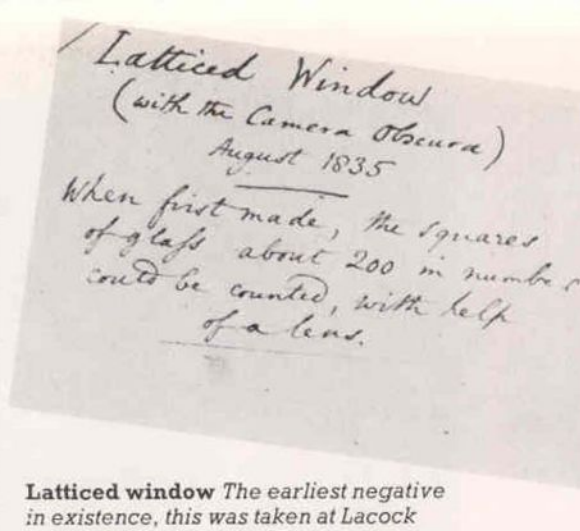 Latticed Window
(with the Camera Obscura)
August 1835
When first made, the squares
of glass about 200 in number
could be counted, with help
of a lens.
Latticed window The earliest negative
in existence, this was taken at Lacock